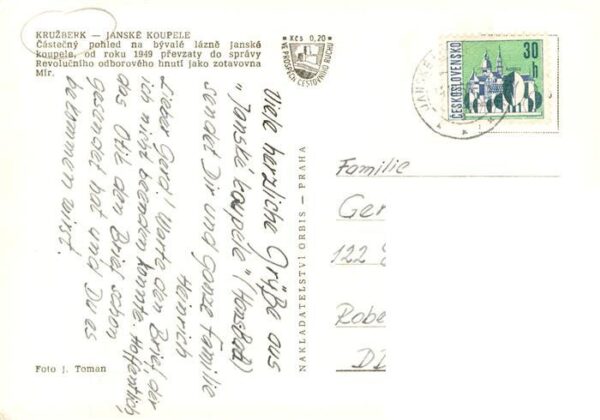 KRUŽBERK — JANSKÉ KOUPELE
Částečný pohled na bývalé lázně Janské
koupele, od roku 1949 převzaty do správy
Revolučního odborového hnutí jako zotavovna
Mír.
Kčs 0,20
VE PROSPĚCH CESTOVNÍHO RUCHU
ČESKOSLOVENSKO
30
h
Viele herzliche Grüße aus
"Janské koupele"
sendet Dir und ganze Familie
Heinrich
Lieber Gerd! Warte den Brief der
ich nicht beenden konnte. Hoffentlich
das Otil den Brief schon
gesendet hat und Du es
bekommen wirst.
NAKLADATELSTVÍ ORBIS — PRAHA
Familie
Ger
122
Robe
Foto J. Toman